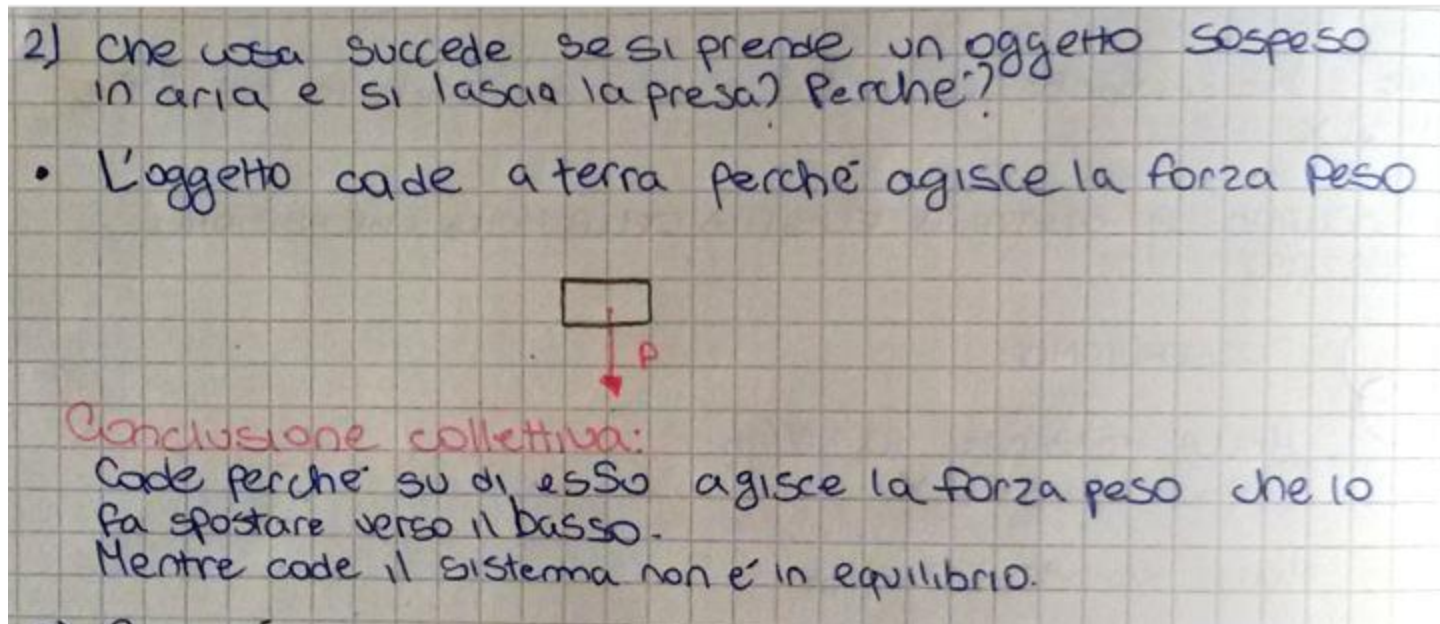 2) Che cosa succede se si prende un oggetto sospeso
in aria e si lascia la presa? Perché?
• L'oggetto cade a terra perché agisce la forza peso
P
Conclusione collettiva:
Cade perché su di esso agisce la forza peso che lo
fa spostare verso il basso.
Mentre cade il sistema non é in equilibrio.